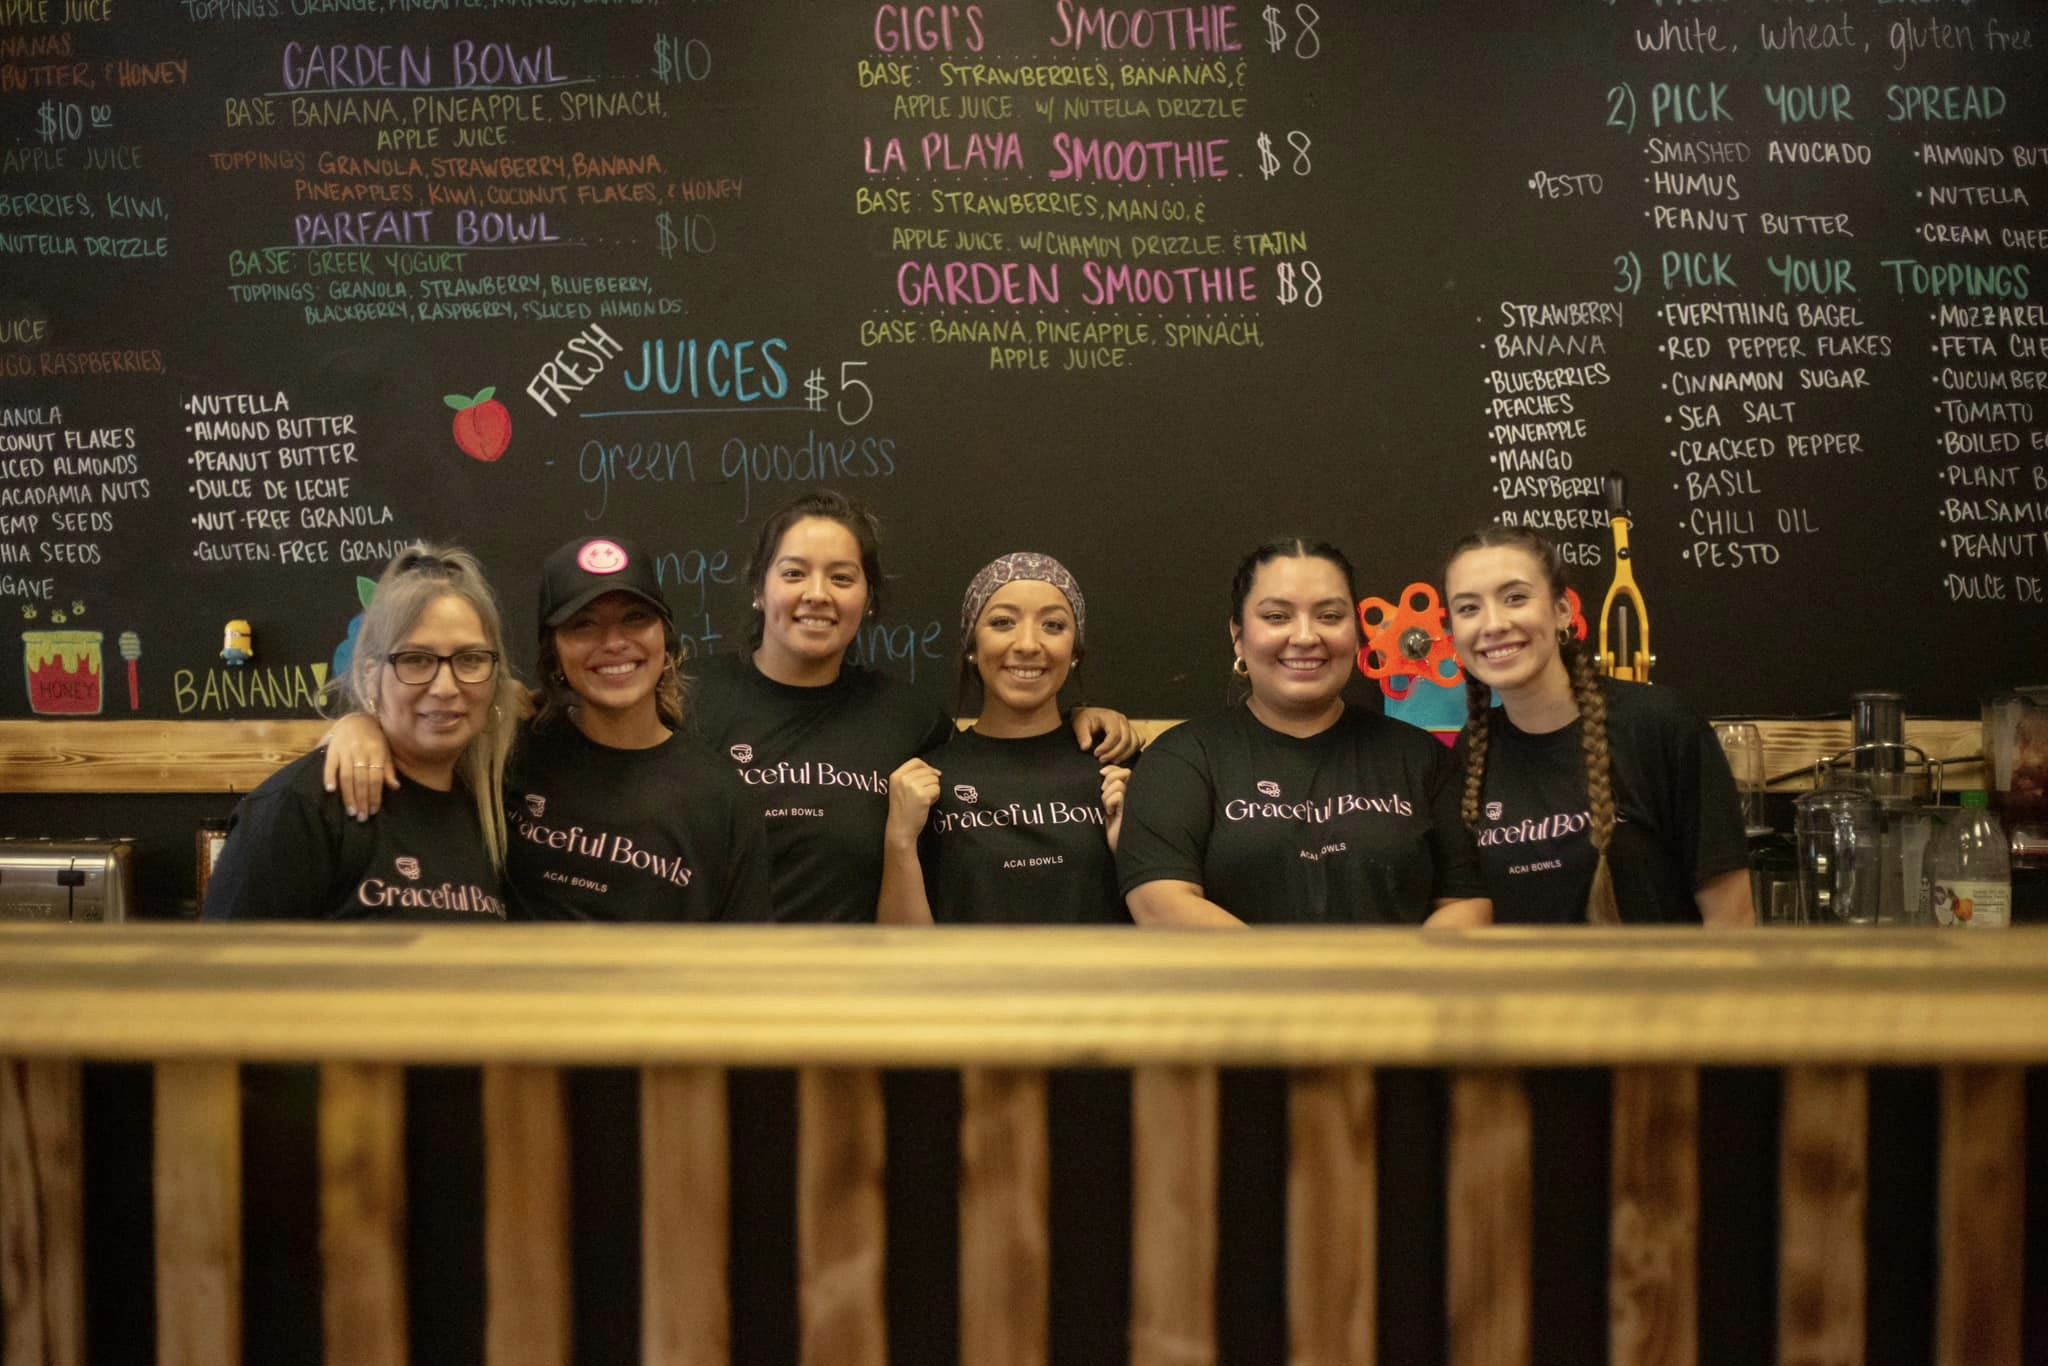 APPLE JUICE
NANAS
BUTTER, & HONEY
$10 00
APPLE JUICE
BERRIES, KIWI,
NUTELLA DRIZZLE
UICE
NGO, RASPBERRIES,
ANOLA
CONUT FLAKES
ICED ALMONDS
ACADAMIA NUTS
EMP SEEDS
HIA SEEDS
GAVE
•NUTELLA
•ALMOND BUTTER
•PEANUT BUTTER
•DULCE DE LECHE
•NUT-FREE GRANOLA
•GLUTEN-FREE GRANOLA
HONEY
BANANA!
TOPPINGS: ORANGE, PINEAPPLE, MANGO,
GARDEN BOWL $10
BASE: BANANA, PINEAPPLE, SPINACH,
APPLE JUICE.
TOPPINGS: GRANOLA, STRAWBERRY, BANANA,
PINEAPPLES, KIWI, COCONUT FLAKES, & HONEY
PARFAIT BOWL $10
BASE: GREEK YOGURT
TOPPINGS: GRANOLA, STRAWBERRY, BLUEBERRY,
BLACKBERRY, RASPBERRY, & SLICED ALMONDS.
FRESH JUICES $5
- green goodness
nge
ot
nge
GIGI'S SMOOTHIE $8
BASE: STRAWBERRIES, BANANAS, &
APPLE JUICE. W/ NUTELLA DRIZZLE
LA PLAYA SMOOTHIE $8
BASE: STRAWBERRIES, MANGO, &
APPLE JUICE. W/ CHAMOY DRIZZLE. & TAJIN
GARDEN SMOOTHIE $8
BASE: BANANA, PINEAPPLE, SPINACH,
APPLE JUICE.
white, wheat, gluten free
2) PICK YOUR SPREAD
•PESTO
•SMASHED AVOCADO
•HUMUS
•PEANUT BUTTER
•ALMOND BUT
•NUTELLA
•CREAM CHEE
3) PICK YOUR TOPPINGS
STRAWBERRY
•BANANA
•BLUEBERRIES
•PEACHES
•PINEAPPLE
•MANGO
•RASPBERRI
•BLACKBERRI
NGES
•EVERYTHING BAGEL
•RED PEPPER FLAKES
•CINNAMON SUGAR
•SEA SALT
•CRACKED PEPPER
•BASIL
•CHILI OIL
•PESTO
•MOZZAREL
•FETA CHE
•CUCUMBER
•TOMATO
•BOILED E
•PLANT B
•BALSAMI
•PEANUT
•DULCE DE
Graceful Bow
raceful Bowls
ACAI BOWLS
aceful Bowls
ACAI BOWLS
Graceful Bow
ACAI BOWLS
Graceful Bowls
ACAI BOWLS
aceful Bow
ACAI BOWLS